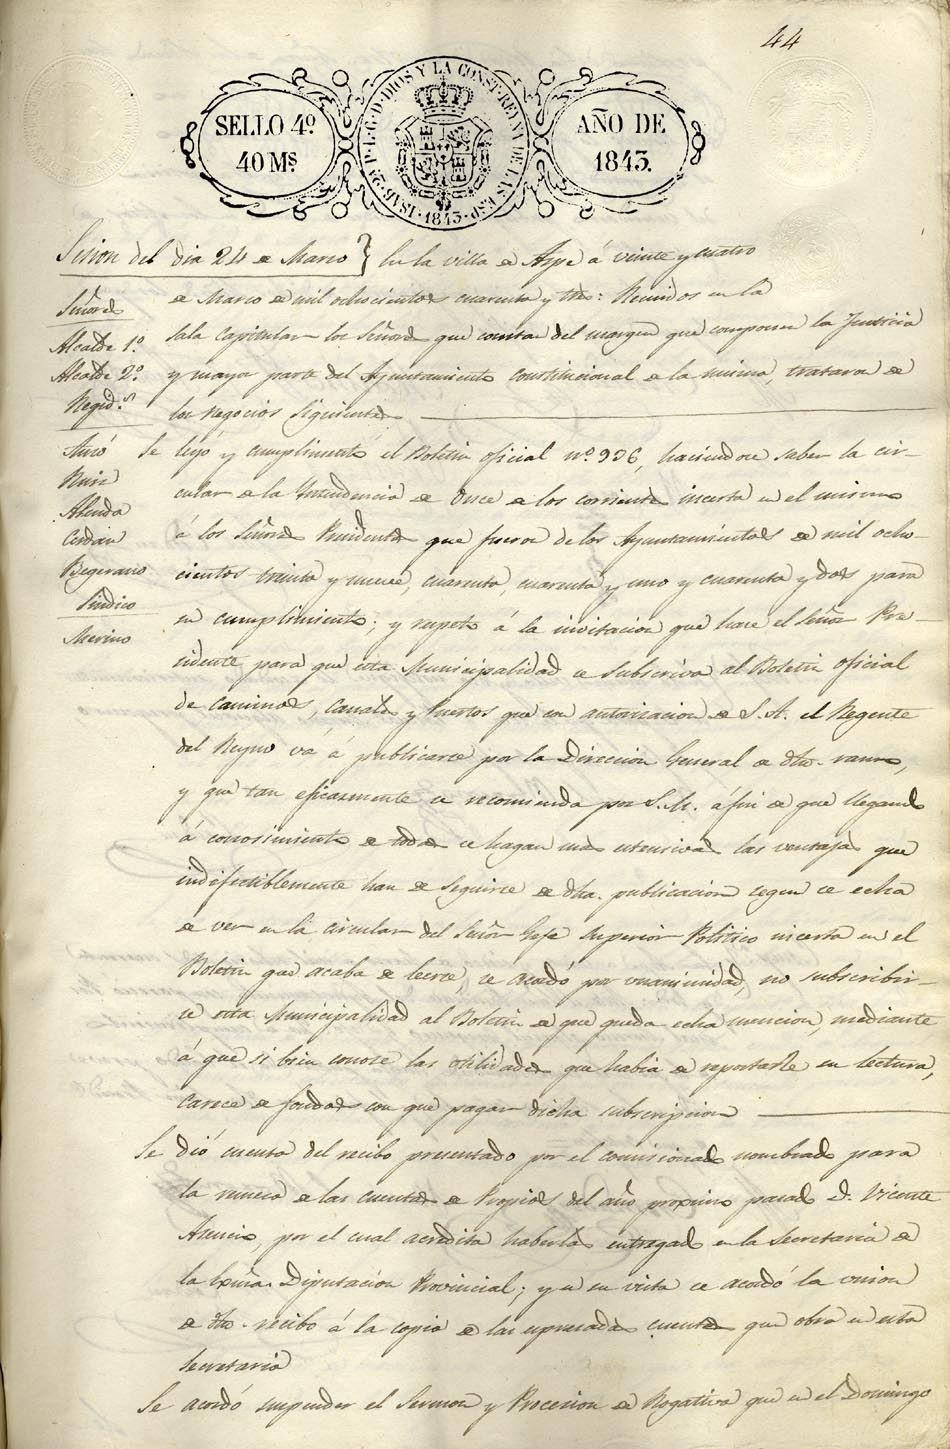 44
SELLO 4º
40 Mˢ
ISAB. 2ª P. L. G. D. DIOS Y LA CONST. REYNA DE LAS ESP. 1843
AÑO DE
1843.
Sesion del dia 24 de Marzo } En la villa de Aspe á veinte y cuatro
de Marzo de mil ochocientos cuarenta y tres: Reunidos en la
Sala Capitular los Señores que constan del margen que componen la Justicia
y mayor parte del Ayuntamiento Constitucional de la misma, trataron de
los negocios siguientes
Señores
Alcalde 1º
Alcalde 2º
Regid.ˢ
Ruiz
Alenda
Cerdan
Begerano
Sindico
Merino
Se leyó y cumplimentó el Boletin oficial nº 936, haciendose saber la cir-
cular de la Yntendencia de Once de los corrientes incerta en el mismo
á los Señores Presidentes que fueron de los Ayuntamientos de mil ocho-
cientos treinta y nueve, cuarenta, cuarenta y uno y cuarenta y dos para
su cumplimiento; y respeto á la invitacion que hace el Señor Pre-
cidente para que esta Municipalidad se subscriva al Boletin oficial
de caminos, Canales y Puertos que con autorizacion de S. A. el Regente
del Reyno vá á publicarce por la Direccion General de dho. ramo,
y que tan eficazmente se recomienda por S. A. á fin de que llegando
á conosimiento de todos se hagan mas estensivas las ventajas que
indifectiblemente han de seguirce de dha. publicacion cegun se echa
de ver en la circular del Señor Gefe Superior Politico incerta en el
Boletin que acaba de leerce, se acordó por unanimidad, no subscribir-
ce esta Municipalidad al Boletin de que queda echa mencion, mediante
á que si bien conoce las utilidades que habia de reportarle su lectura,
Carece de fondos con que pagar dicha subscripcion
Se dió cuenta del recibo presentado por el comisionado nombrado para
la de las cuentas de Propios del año proximo pasado D. Vicente
Asencio, por el cual acredita haberlas entregado en la Secretaria de
la Exma. Diputacion Provincial; y en su vista se acordó la union
de dho. recibo á la copia de las espresadas cuentas que obra en esta
Secretaria
Se acordó suspender el Sermon y Procesion de Rogativa que en el Domingo